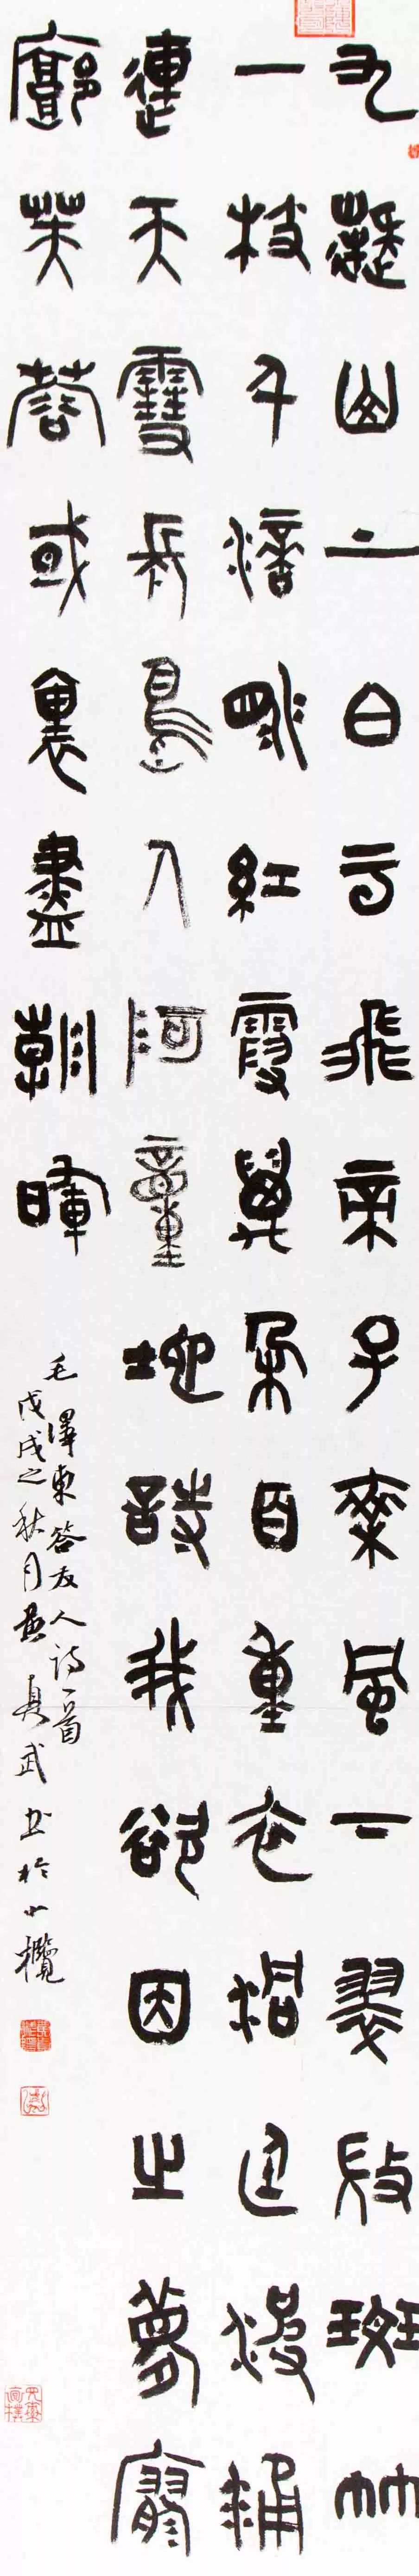 九嶷山上白云飛帝子乘風下翠微斑竹
一枝千滴淚紅霞萬朵百重衣洞庭波涌
連天雪長島人歌動地詩我欲因之夢寥
廓芙蓉或裏盡朝暉
毛澤東答友人詩一首
戊戌之秋月武书於小欖